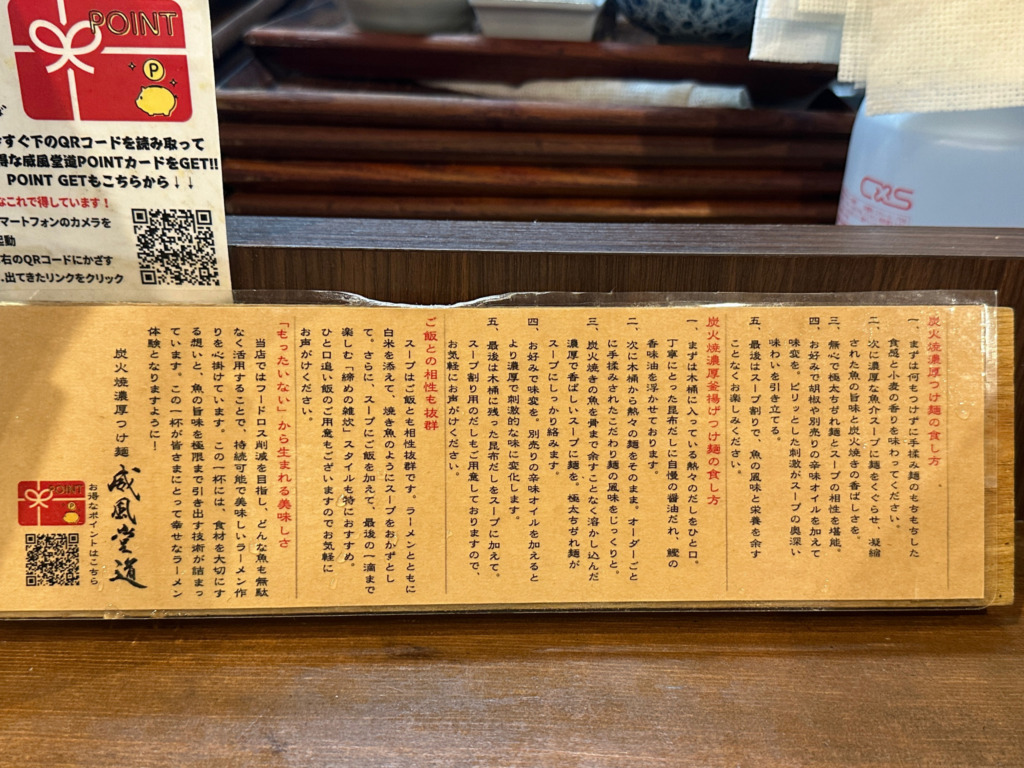 POINT
P
すぐ下のQRコードを読み取って
得な威風堂道POINTカードをGET!!
POINT GETもこちらから↓↓
なこれで得しています！
マートフォンのカメラを
起動
右のQRコードにかざす
出てきたリンクをクリック
炭火焼濃厚つけ麺の食し方
一、まずは何もつけずに手揉み麺のもちもちした
食感と小麦の香りを味わってください。
二、次に濃厚魚介スープに麺をくぐらせ、凝縮
された魚の旨味と炭火焼きの香ばしさを。
三、無心で極太ちぢれ麺とスープの相性を堪能。
四、お好みで胡椒や別売りの辛味オイルを加えて
味変を。ピリッとした刺激がスープの奥深い
味わいを引き立てる。
五、最後はスープ割りで、魚の風味と栄養を余す
ことなくお楽しみください。
炭火焼濃厚釜揚げつけ麺の食し方
一、まずは木桶に入っている熱々のだしをひと口。
丁寧にとった昆布だしに自慢の醤油だれ、鰹の
香味油を浮かせております。
二、次に木桶から熱々の麺をそのまま。オーダーごと
に手揉みされたこだわり麺の風味をじっくりと。
三、炭火焼きの魚を骨まで余すことなく溶かし込んだ
濃厚で香ばしいスープに麺を。極太ちぢれ麺が
スープにしっかり絡みます。
四、お好みで味変を。別売りの辛味オイルを加えると
より濃厚で刺激的な味に変化します。
五、最後は木桶に残った昆布だしをスープに加えて。
スープ割り用のだしもご用意しておりますので、
お気軽にお声がけください。
ご飯との相性も抜群
スープはご飯とも相性抜群です。ラーメンとともに
白米を添えて、焼き魚のようにスープをおかずとし
て。さらに、スープにご飯を加えて、最後の一滴まで
楽しむ「締めの雑炊」スタイルも特におすすめ。
ひと口追い飯のご用意もございますのでお気軽に
お声がけください。
「もったいない」から生まれる美味しさ
当店ではフードロス削減を目指し、どんな魚も無駄
なく活用することで、持続可能で美味しいラーメン作
りを心掛けています。この一杯には、食材を大切にす
る想いと、魚の旨味を極限まで引き出す技術が詰まっ
ています。この一杯が皆さまにとって幸せなラーメン
体験となりますように！
炭火焼濃厚つけ麺 威風堂道
お得なポイントはこちら
POINT